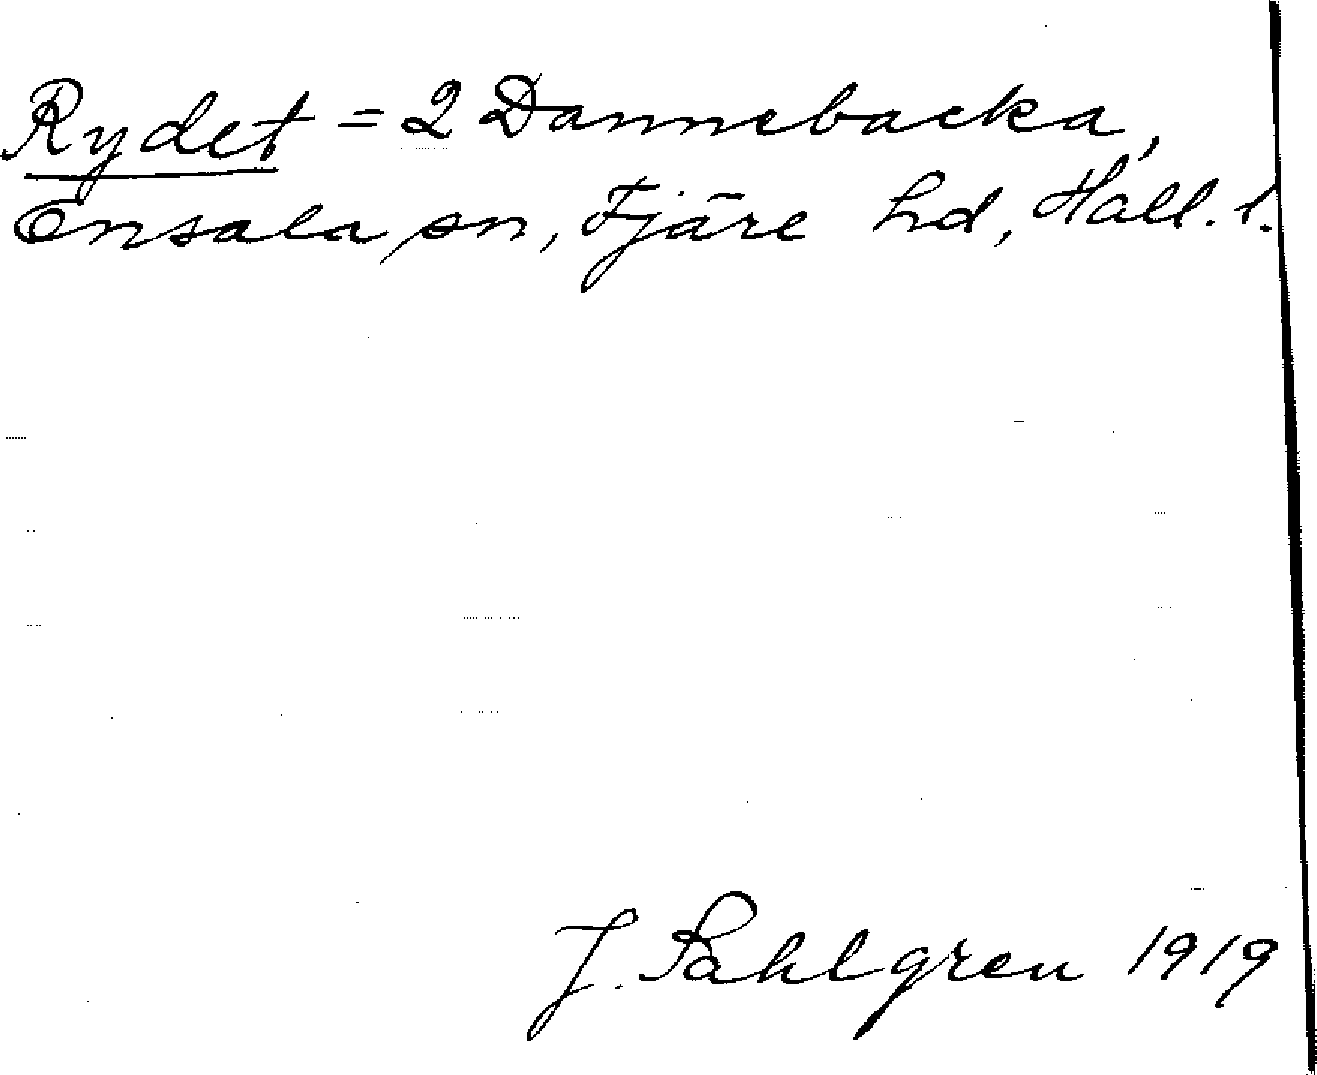 Rydet = 2 Dannebacka,
Onsala sn, Fjäre hd, Hall. l.
J. Sahlgren 1919